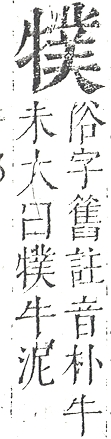 㹒
俗字舊註音朴牛
未大曰㹒牛泥